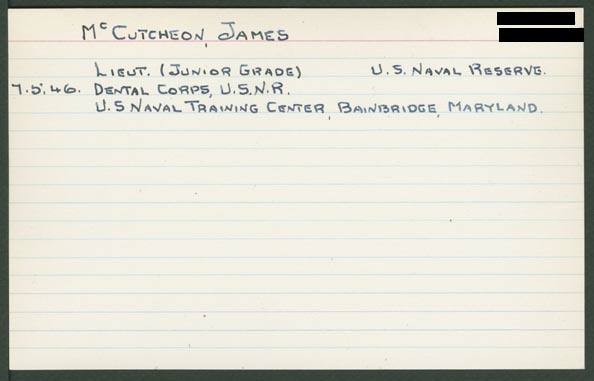 McCutcheon, James
Lieut. (Junior Grade) U.S. Naval Reserve.
7.5.46. Dental Corps, U.S.N.R.
U.S Naval Training Center, Bainbridge, Maryland.